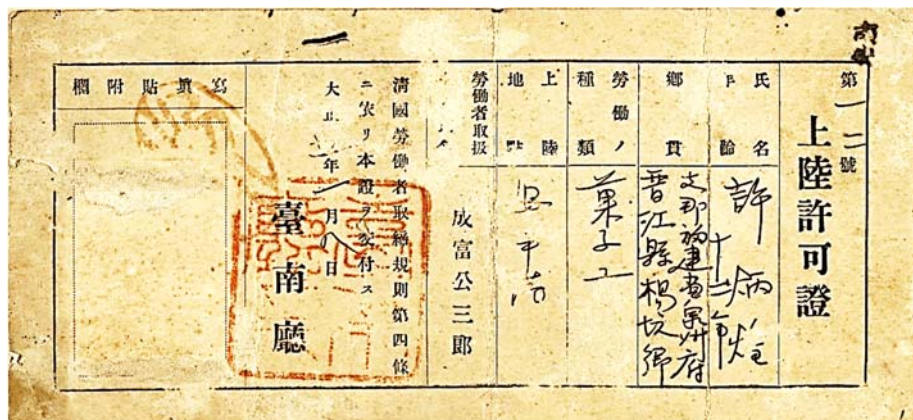 第一二號
上陸許可證
氏名
年齡
許炳
十二年
鄉貫
支那福建省泉州府
晉江縣楊坑鄉
勞働ノ
種類
菓子工
上陸
地點
安平港
勞働者取扱人
成富公三郎
清國勞働者取締規則第四條
ニ依リ本證ヲ交付ス
大正 年 月 日
臺南廳
寫眞貼附欄